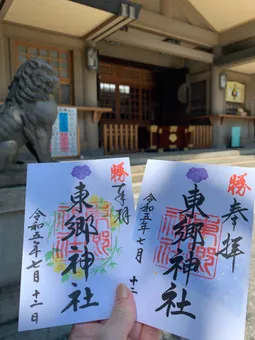 勝
奉拝
東郷神社
令和五年七月十二日
勝
奉拝
東郷神社
令和五年七月十二日